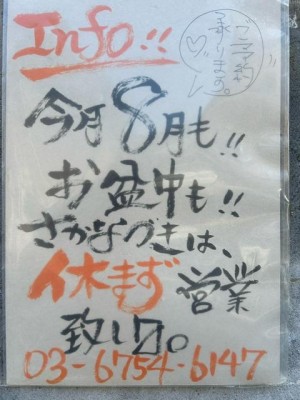 Info!!
ご予約
承ります。
今月8月も!!
お盆中も!!
さかなのきは、
休まず営業
致し〼。
03-6754-6147